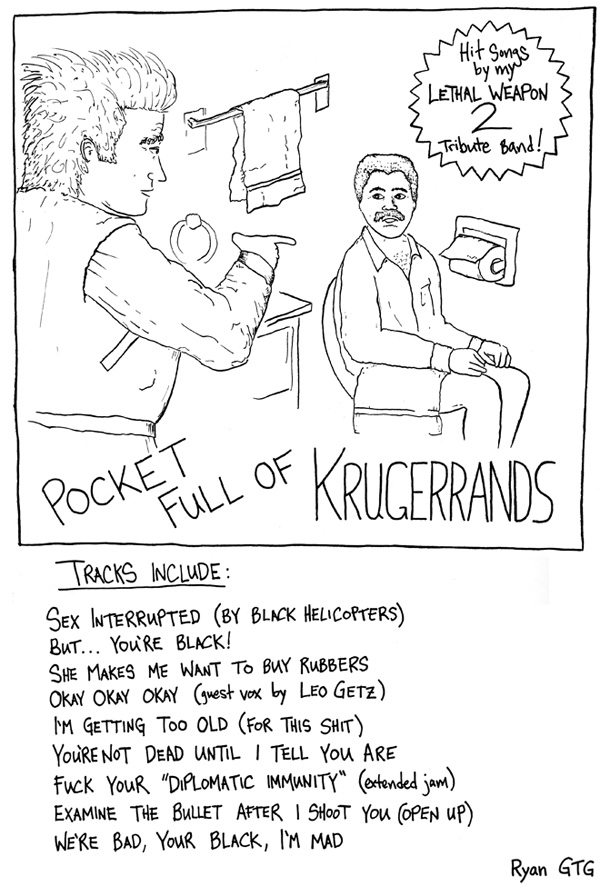 Hit Songs
by my
LETHAL WEAPON
2
Tribute Band!
POCKET
FULL OF KRUGERRANDS
TRACKS INCLUDE:
SEX INTERRUPTED (BY BLACK HELICOPTERS)
BUT... YOU'RE BLACK!
SHE MAKES ME WANT TO BUY RUBBERS
OKAY OKAY OKAY (guest vox by LEO GETZ)
I'M GETTING TOO OLD (FOR THIS SHIT)
YOU'RE NOT DEAD UNTIL I TELL YOU ARE
FUCK YOUR "DIPLOMATIC IMMUNITY" (extended jam)
EXAMINE THE BULLET AFTER I SHOOT YOU (OPEN UP)
WE'RE BAD, YOUR BLACK, I'M MAD
Ryan GTG